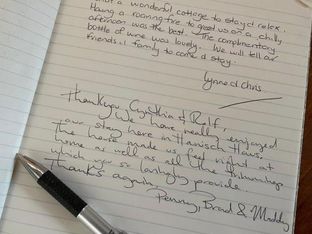 a wonderful cottage to stay & relax.
Having a roaring fire to greet us on a chilly
afternoon was the best. The complimentary
bottle of wine was lovely. We will tell our
friends & family to come & stay.
Lynne & Chris.
Thankyou Cynthia & Rolf,
We have really enjoyed
our stay here in Hanisch Haus.
The house made us feel right at
home as well as all the trimmings
which you so lovingly provide.
Thanks again,
Penny, Brad & Maddy